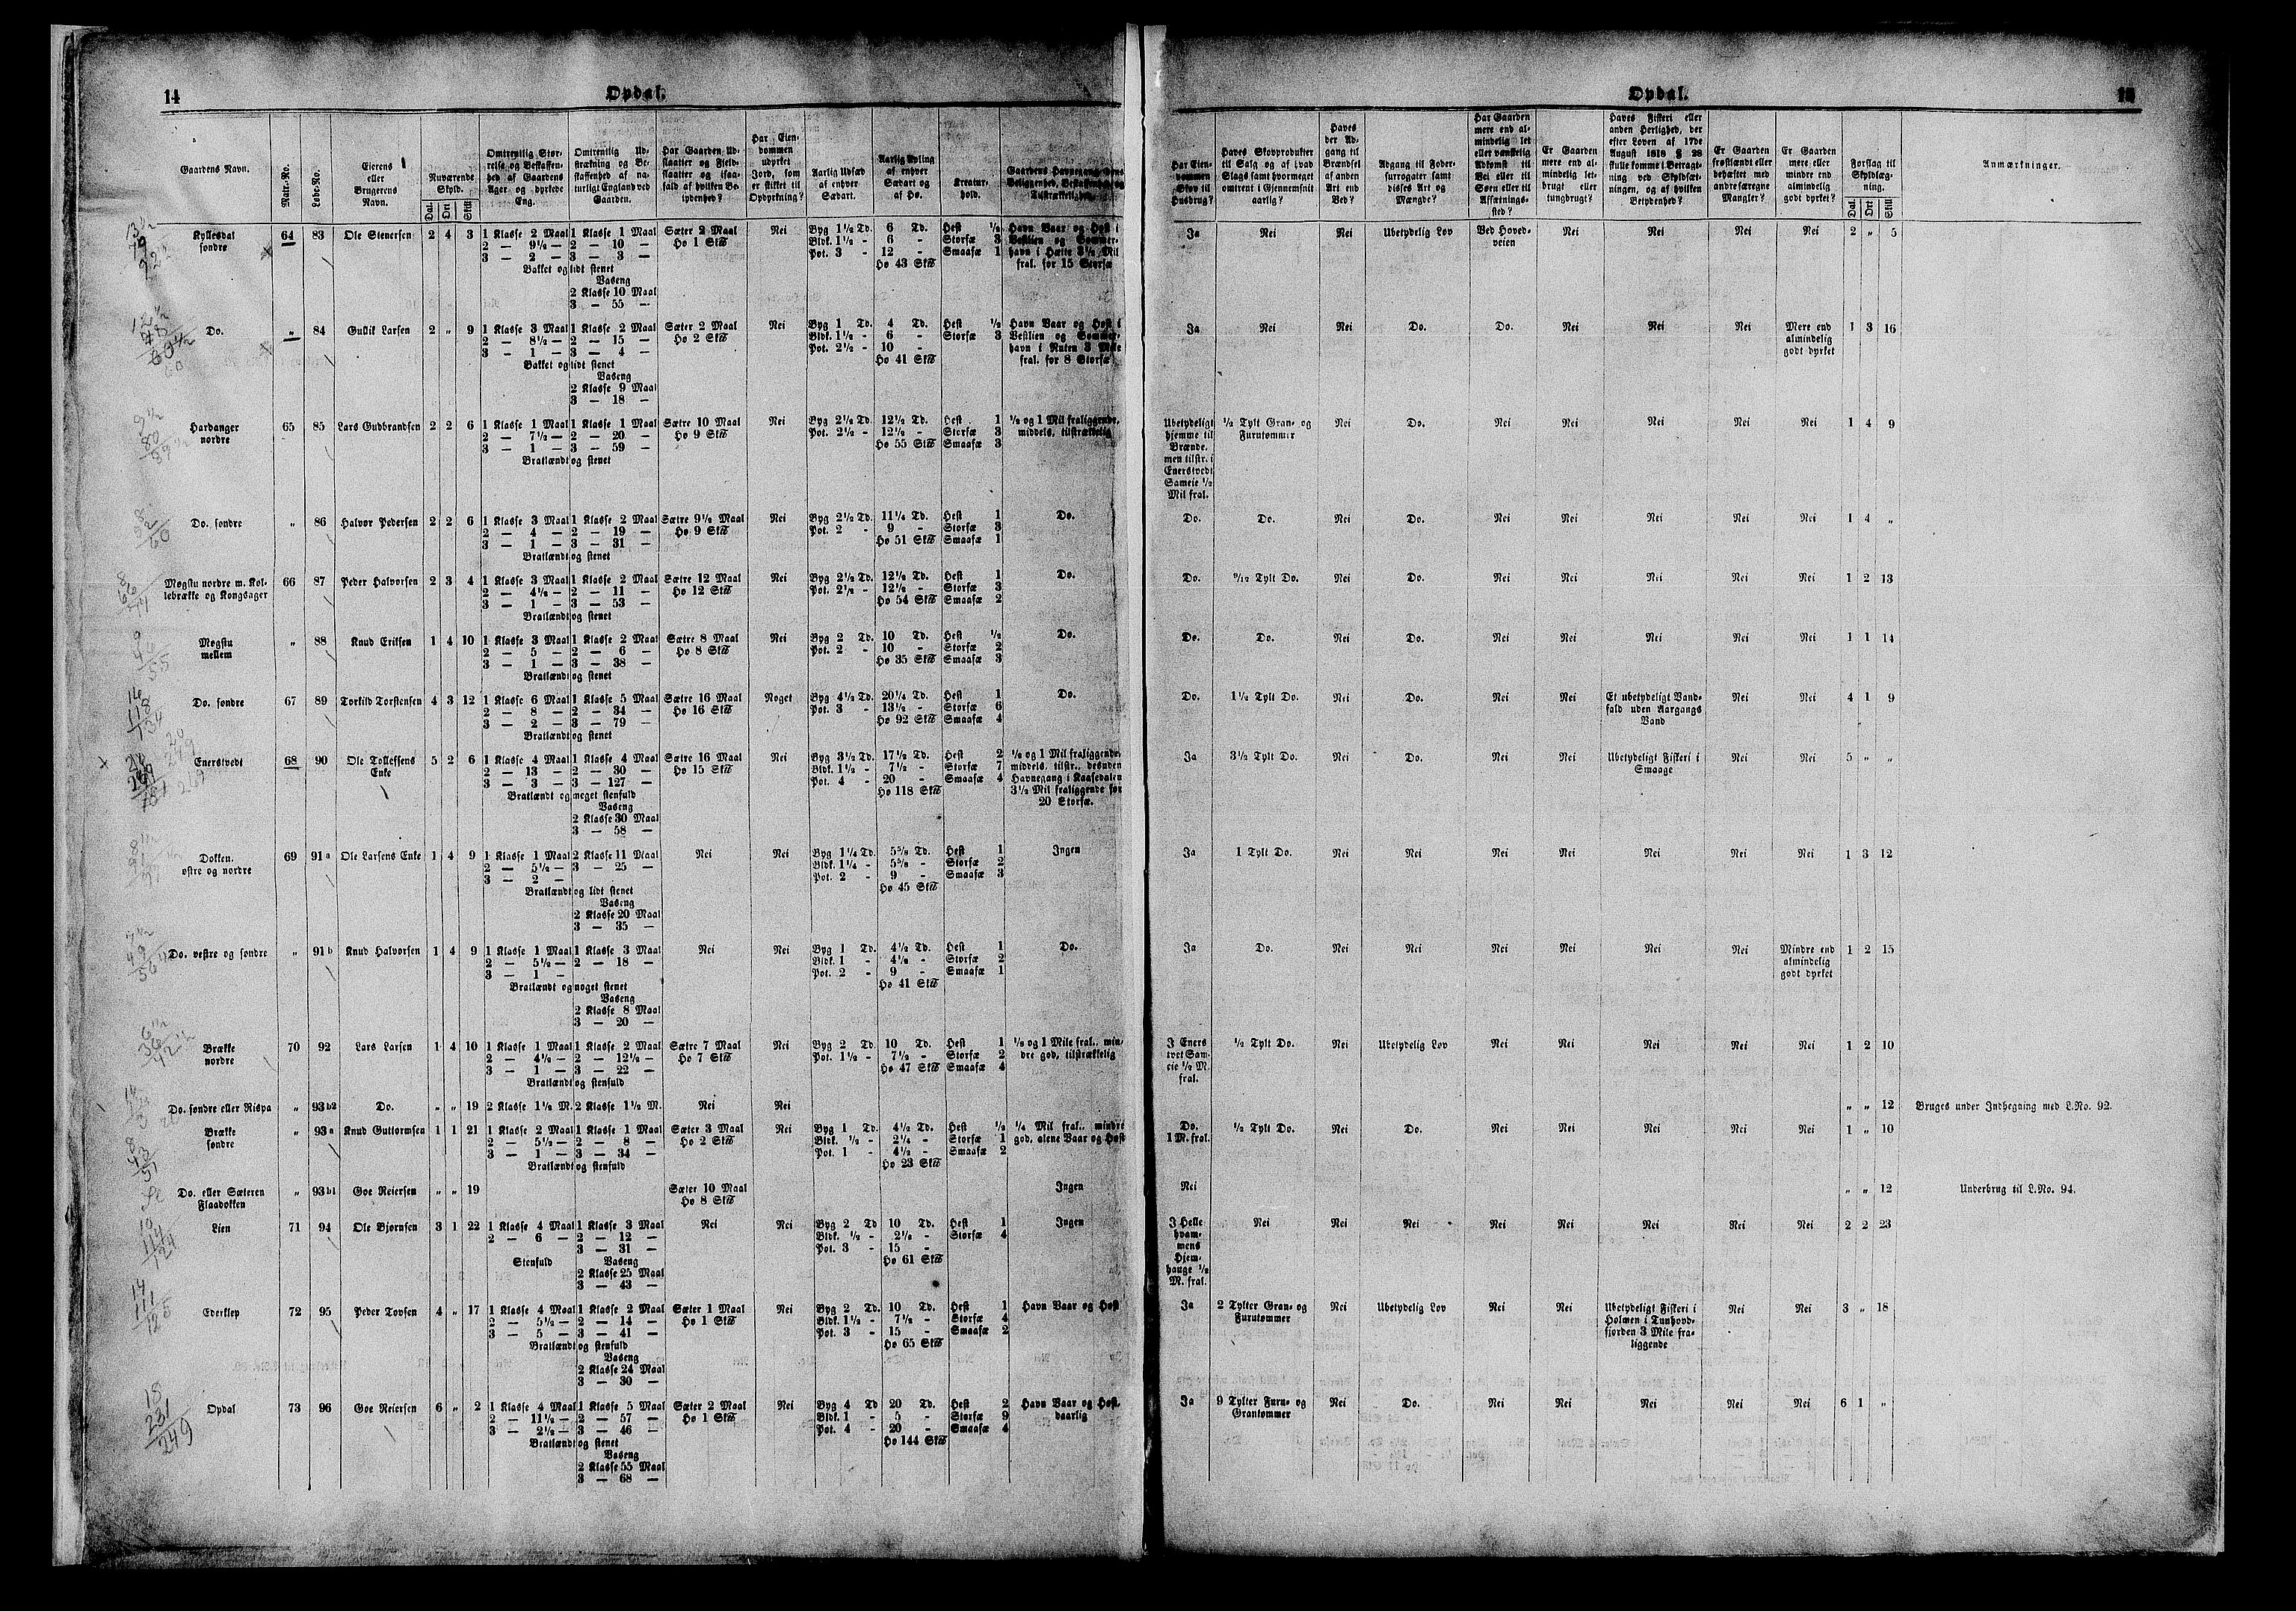 14
Opdal.
Gaardens Navn. | Matr.-No. | Løbe-No. | Eierens eller Brugerens Navn. | Nuværende Skyld. Dal. Ort Skill. | Omtrentlig Størrelse og Beskaffenhed af Gaardens Ager og dyrkede Eng. | Omtrentlig Udstrækning og Beskaffenhed af naturligt England ved Gaarden. | Har Gaarden Udslaatter og Fjeldslaatter og isaafald af hvilken Betydenhed? | Har Eiendommen udyrket Jord, som er skikket til Opdyrkning? | Aarlig Udsæd af enhver Sædart. | Aarlig Avling af enhver Sædart og af Hø. | Kreaturhold. | Gaardens Havnegang, dens Beliggenhed, Beskaffenhed og Tilstrækkelighed.
Kyllesdal søndre | 64 | 83 | Ole Stenersen | 2 | 4 | 3 | 1 Klasse 2 Maal 2 — 9½ — 3 — 2 — Bakket og lidt stenet | 1 Klasse 1 Maal 2 — 10 — 3 — 3 — Vaseng 2 Klasse 10 Maal 3 — 55 — | Sæter 2 Maal Hø 1 Sk℔ | Nei | Byg 1½ Td. Bldk. 1½ - Pot. 3 - | 6 Td. 6 - 12 - Hø 43 Sk℔ | Hest ½ Storfæ 3 Smaafæ 1 | Havn Vaar og Høst i Vestlien og Sommerhavn i Hætte 3½ Mil fral. for 15 Storfæ
Do. | „ | 84 | Gullik Larsen | 2 | „ | 9 | 1 Klasse 3 Maal 2 — 8½ — 3 — 1 — Bakket og lidt stenet | 1 Klasse 2 Maal 2 — 15 — 3 — 4 — Vaseng 2 Klasse 9 Maal 3 — 18 — | Sæter 2 Maal Hø 2 Sk℔ | Nei | Byg 1 Td. Bldk. 1½ - Pot. 2½ - | 4 Td. 6 - 10 - Hø 41 Sk℔ | Hest ½ Storfæ 3 | Havn Vaar og Høst i Vestlien og Sommerhavn i Ruten 3 Mile fral. for 8 Storfæ
Hardanger nordre | 65 | 85 | Lars Gudbrandsen | 2 | 2 | 6 | 1 Klasse 1 Maal 2 — 7½ — 3 — 1 — Bratlændt og stenet | 1 Klasse 1 Maal 2 — 20 — 3 — 59 — | Sætre 10 Maal Hø 9 Sk℔ | Nei | Byg 2½ Td. Pot. 2½ - | 12½ Td. 12½ - Hø 55 Sk℔ | Hest 1 Storfæ 3 Smaafæ 3 | ½ og 1 Mil fraliggende, middels, tilstrækkelig
Do. søndre | „ | 86 | Halvor Pedersen | 2 | 2 | 6 | 1 Klasse 3 Maal 2 — 4 — 3 — 1 — Bratlændt og stenet | 1 Klasse 2 Maal 2 — 19 — 3 — 31 — | Sætre 9½ Maal Hø 9 Sk℔ | Nei | Byg 2½ Td. Pot. 2 - | 11¼ Td. 9 - Hø 51 Sk℔ | Hest 1 Storfæ 3 Smaafæ 1 | Do.
Møgstu nordre m. Kollebrække og Kongsager | 66 | 87 | Peder Halvorsen | 2 | 3 | 4 | 1 Klasse 3 Maal 2 — 4½ — 3 — 1 — Bratlændt og stenet | 1 Klasse 2 Maal 2 — 11 — 3 — 53 — | Sætre 12 Maal Hø 12 Sk℔ | Nei | Byg 2½ Td. Pot. 2½ - | 12½ Td. 12½ - Hø 54 Sk℔ | Hest 1 Storfæ 3 Smaafæ 2 | Do.
Møgstu mellem | „ | 88 | Knud Eriksen | 1 | 4 | 10 | 1 Klasse 3 Maal 2 — 5 — 3 — 1 — Bratlændt og stenet | 1 Klasse 2 Maal 2 — 6 — 3 — 38 — | Sætre 8 Maal Hø 8 Sk℔ | Nei | Byg 2 Td. Pot. 2 - | 10 Td. 10 - Hø 35 Sk℔ | Hest ½ Storfæ 2 Smaafæ 3 | Do.
Do. søndre | 67 | 89 | Torkild Torstensen | 4 | 3 | 12 | 1 Klasse 6 Maal 2 — 8 — 3 — 2 — Bratlændt og stenet | 1 Klasse 5 Maal 2 — 34 — 3 — 79 — | Sætre 16 Maal Hø 16 Sk℔ | Noget | Byg 4½ Td. Pot. 3 - | 20¼ Td. 13½ - Hø 92 Sk℔ | Hest 1 Storfæ 6 Smaafæ 4 | Do.
Enerstvedt | 68 | 90 | Ole Tollefsens Enke | 5 | 2 | 6 | 1 Klasse 4 Maal 2 — 13 — 3 — 3 — Bratlændt og meget stenfuld | 1 Klasse 4 Maal 2 — 30 — 3 — 127 — Vaseng 2 Klasse 30 Maal 3 — 58 — | Sætre 16 Maal Hø 15 Sk℔ | Nei | Byg 3½ Td. Bldk. 1½ - Pot. 4 - | 17½ Td. 7½ - 20 - Hø 118 Sk℔ | Hest 2 Storfæ 7 Smaafæ 4 | ½ og 1 Mil fraliggende, middels, tilstr., desuden Havnegang i Kaasedalen 3½ Mil fraliggende for 20 Storfæ.
Dokken, østre og nordre | 69 | 91 a | Ole Larsens Enke | 1 | 4 | 9 | 1 Klasse 1 Maal 2 — 5½ — 3 — 2 — Bratlændt og lidt stenet | 2 Klasse 11 Maal 3 — 25 — Vaseng 2 Klasse 20 Maal 3 — 35 — | Nei | Nei | Byg 1¼ Td. Bldk. 1¼ - Pot. 2 - | 5⅝ Td. 5⅝ - 9 - Hø 45 Sk℔ | Hest 1 Storfæ 2 Smaafæ 3 | Ingen
Do. vestre og søndre | „ | 91 b | Knud Halvorsen | 1 | 4 | 9 | 1 Klasse 1 Maal 2 — 5½ — 3 — 1 — Bratlændt og noget stenet | 1 Klasse 3 Maal 2 — 18 — Vaseng 2 Klasse 8 Maal 3 — 20 — | Nei | Nei | Byg 1 Td. Bldk. 1 - Pot. 2 - | 4½ Td. 4½ - 9 - Hø 41 Sk℔ | Hest 1 Storfæ 2 Smaafæ 1 | Do.
Brække nordre | 70 | 92 | Lars Larsen | 1 | 4 | 10 | 1 Klasse 1 Maal 2 — 4½ — 3 — 1 — Bratlændt og stenfuld | 1 Klasse 2 Maal 2 — 12½ — 3 — 22 — | Sætre 7 Maal Hø 7 Sk℔ | Nei | Byg 2 Td. Pot. 1½ - | 10 Td. 7½ - Hø 47 Sk℔ | Hest 1 Storfæ 2 Smaafæ 4 | ½ og 1 Mile fral., mindre god, tilstrækkelig
Do. søndre eller Rispa | „ | 93 b2 | Do. | „ | „ | 19 | 2 Klasse 1½ M. | 2 Klasse 1½ M. | Nei | Nei
Brække søndre | „ | 93 a | Knud Guttormsen | 1 | 1 | 21 | 1 Klasse 2 Maal 2 — 5½ — 3 — 1 — Bratlændt og stenfuld | 1 Klasse 1 Maal 2 — 8 — 3 — 34 — | Sæter 3 Maal Hø 2 Sk℔ | Nei | Byg 1 Td. Bldk. ½ - Pot. 1 - | 4½ Td. 2¼ - 4½ - Hø 23 Sk℔ | Hest ½ Storfæ 1 Smaafæ 2 | ¼ Mil fral., mindre god, alene Vaar og Høst
Do. eller Sæteren Flaadokken | „ | 93 b1 | Goe Reiersen | „ | „ | 19 | Sæter 10 Maal Hø 8 Sk℔ | Ingen
Lien | 71 | 94 | Ole Bjørnsen | 3 | 1 | 22 | 1 Klasse 4 Maal 2 — 6 — Stenfuld | 1 Klasse 3 Maal 2 — 12 — 3 — 31 — Vaseng 2 Klasse 25 Maal 3 — 43 — | Nei | Nei | Byg 2 Td. Bldk. ½ - Pot. 3 - | 10 Td. 2½ - 15 - Hø 61 Sk℔ | Hest 1 Storfæ 4 | Ingen
Ederklep | 72 | 95 | Peder Tovsen | 4 | „ | 17 | 1 Klasse 4 Maal 2 — 5½ — 3 — 5 — Bratlændt og stenfuld | 1 Klasse 2 Maal 2 — 14 — 3 — 41 — Vaseng 2 Klasse 24 Maal 3 — 30 — | Sæter 1 Maal Hø 1 Sk℔ | Nei | Byg 2 Td. Bldk. 1½ - Pot. 3 - | 10 Td. 7½ - 15 - Hø 65 Sk℔ | Hest 1 Storfæ 4 Smaafæ 2 | Havn Vaar og Høst
Opdal | 73 | 96 | Goe Reiersen | 6 | „ | 2 | 1 Klasse 4 Maal 2 — 11½ — 3 — 2½ — Bratlændt og stenet | 1 Klasse 5 Maal 2 — 57 — 3 — 46 — Vaseng 2 Klasse 55 Maal 3 — 68 — | Sæter 2 Maal Hø 1 Sk℔ | Nei | Byg 4 Td. Bldk. 1 - Pot. 4 - | 20 Td. 5 - 20 - Hø 144 Sk℔ | Hest 2 Storfæ 9 Smaafæ 4 | Havn Vaar og Høst, daarlig
Opdal.
Har Eiendommen Skov til Husbrug? | Haves Skovprodukter til Salg og af hvad Slags samt hvormeget omtrent i Gjennemsnit aarlig? | Haves der Adgang til Brændsel af anden Art end Ved? | Adgang til Fodersurrogater samt disses Art og Mængde? | Har Gaarden mere end almindelig let eller vanskelig Adkomst til Vei eller til Søen eller til Afsætningssted? | Er Gaarden mere end almindelig letbrugt eller tungbrugt? | Haves Fiskeri eller anden Herlighed, der efter Loven af 17de August 1818 § 28 skulle komme i Betragtning ved Skyldsætningen, og af hvilken Betydenhed? | Er Gaarden frostlændt eller behæftet med andre særegne Mangler? | Er Gaarden mere eller mindre end almindelig godt dyrket? | Forslag til Skyldlægning. Dal. Ort Skill. | Anmærkninger.
Ja | Nei | Nei | Ubetydelig Løv | Ved Hovedveien | Nei | Nei | Nei | Nei | 2 | „ | 5
Ja | Nei | Nei | Do. | Do. | Nei | Nei | Nei | Mere end almindelig godt dyrket | 1 | 3 | 16
Ubetydeligt hjemme til Brænde, men tilstr. i Enerstvedt Sameie ½ Mil fral. | ½ Tylt Gran- og Furutømmer | Nei | Do. | Nei | Nei | Nei | Nei | Nei | 1 | 4 | 9
Do. | Do. | Nei | Do. | Nei | Nei | Nei | Nei | Nei | 1 | 4 | „
Do. | 9/12 Tylt Do. | Nei | Do. | Nei | Nei | Nei | Nei | Nei | 1 | 2 | 13
Do. | Do. | Nei | Do. | Nei | Nei | Nei | Nei | Nei | 1 | 1 | 14
Do. | 1½ Tylt Do. | Nei | Do. | Nei | Nei | Et ubetydeligt Vandfald uden Aargangs Vand | Nei | Nei | 4 | 1 | 9
Ja | 3½ Tylt Do. | Nei | Do. | Nei | Nei | Ubetydeligt Fiskeri i Smaage | Nei | Nei | 5 | „ | „
Ja | 1 Tylt Do. | Nei | Nei | Nei | Nei | Nei | Nei | Nei | 1 | 3 | 12
Ja | Do. | Nei | Nei | Nei | Nei | Nei | Nei | Mindre end almindelig godt dyrket | 1 | 2 | 15
I Enerstvet Sameie ½ M. fral. | ½ Tylt Do. | Nei | Ubetydelig Løv | Nei | Nei | Nei | Nei | Nei | 1 | 2 | 10
„ | „ | 12 | Bruges under Indhegning med L.No. 92.
Do. 1 M. fral. | ½ Tylt Do. | Nei | Do. | Nei | Nei | Nei | Nei | Nei | 1 | „ | 10
Nei | „ | „ | 12 | Underbrug til L.No. 94.
I Hellehvammens Hjemhauge ½ M. fral. | Nei | Nei | Nei | Nei | Nei | Nei | Nei | Nei | 2 | 2 | 23
Ja | 2 Tylter Gran- og Furutømmer | Nei | Ubetydelig Løv | Nei | Nei | Ubetydeligt Fiskeri i Holmen i Tunhovdfjorden 3 Mile fraliggende | Nei | Nei | 3 | „ | 18
Ja | 9 Tylter Furu- og Grantømmer | Nei | Do. | Nei | Nei | Nei | Nei | Nei | 6 | 1 | „